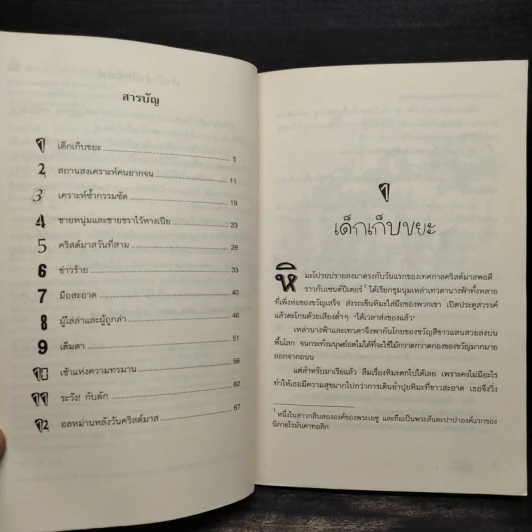 สารบัญ
1 เด็กเก็บขยะ 5
2 สถานสงเคราะห์คนยากจน 11
3 เคราะห์ซ้ำกรรมซัด 19
4 ชายหนุ่มและชายชราไร้หางเปีย 23
5 คริสต์มาสวันที่สาม 28
6 ข่าวร้าย 33
7 มือสะอาด 40
8 ผู้ไล่ล่าและผู้ถูกล่า 48
9 เดิมตา 51
10 เช้าแห่งความทรมาน 56
11 ระวัง! กับดัก 60
12 อลหม่านหลังวันคริสต์มาส 67
1
เด็กเก็บขยะ
หิมะโปรยปรายลงมาตรงกับวันแรกของเทศกาลคริสต์มาสพอดี
ราวกับเซนต์ปีเตอร์1 ได้เรียกชุมนุมเหล่าเทวดานางฟ้าทั้งหลาย
ที่เพิ่งห่อของขวัญเสร็จ ส่งรถเข็นหิมะใส่มือของพวกเขา เปิดประตูสวรรค์
แล้วตะโกนด้วยเสียงต่ำๆ “ได้เวลาส่งของแล้ว”
เหล่านางฟ้าและเทวดาจึงพากันโกยของขวัญสีขาวแสนสวยลงบน
พื้นโลก จนกระทั่งมนุษย์อดไม่ได้ที่จะใช้ไม้กวาดกวาดกองของขวัญมากมาย
ออกจากถนน
แต่สำหรับมาเรียแล้ว ลืมเรื่องหิมะตกไปได้เลย เพราะคงไม่มีอะไร
ทำให้เธอมีความสุขมากไปกว่าการเดินย่ำปุยหิมะที่ขาวสะอาด เธอจึงวิ่ง
1 หนึ่งในสาวกสิบสององค์ของพระเยซู และถือเป็นพระสันตะปาปาองค์แรกของ
นิกายโรมันคาทอลิก